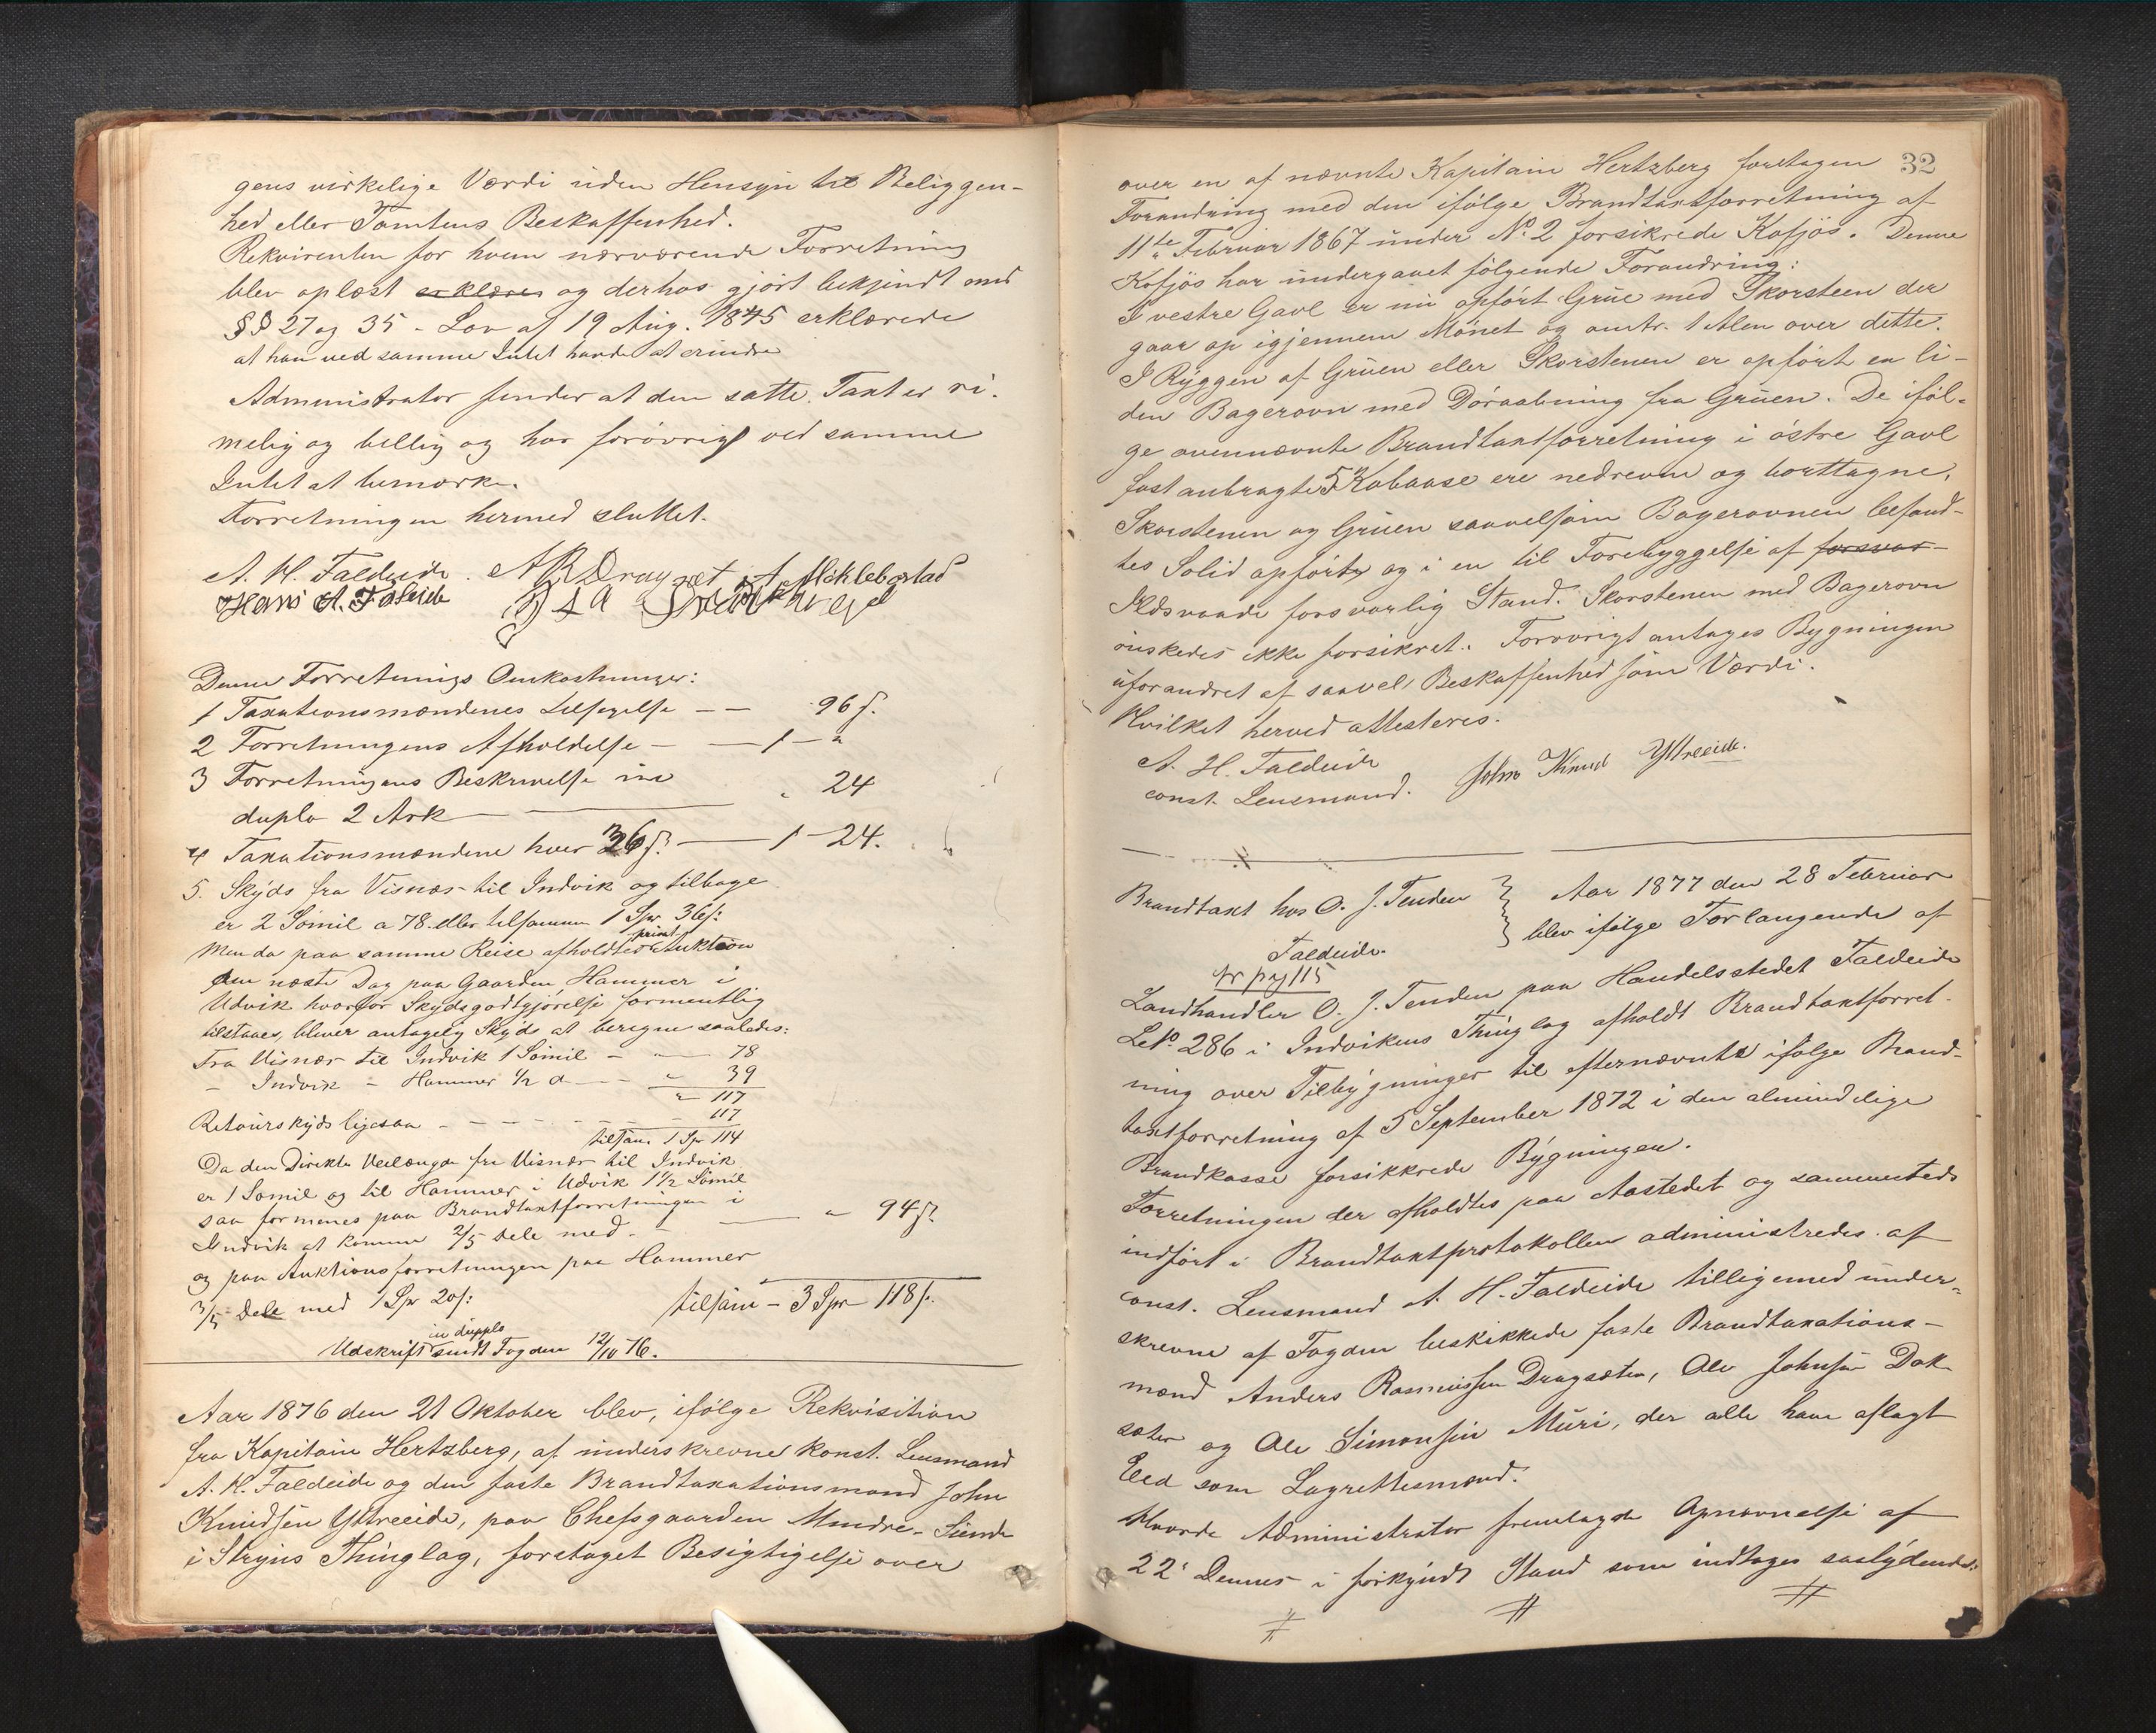 gens virkelige Værdi uden Hensyn til Beliggen-
hed eller Tomtens Beskaffenhed.
Rekvirenten for hvem nærværende Forretning
blev oplæst erklærer og derhos gjört bekjendt med
§§ 27 og 35 - Lov af 19 Aug. 1845 erklærede
at han ved samme Intet havde at erindre
Administrator finder at den satte Taxt er ri-
melig og billig og har forövrigt ved samme
Intet at bemærke.
Forretningen hermed sluttet.
A. H. Faldeide. A R Dragset A Mklebostad
Hans A. Faleide
Denne Forretnings Omkostninger:
1 Taxationsmændenes Tilsigelse — — 96 ſ.
2 Forretningens Afholdelse — — 1 — "
3 Forretningens Beskrivelse in
duplo 2 Ark — " 24
4 Taxationsmændene hver 36 ſ. — 1 — 24.
5. Skyds fra Visnæs til Indvik og tilbage
er 2 Sömil a 78. eller tilsammen 1 Spr 36 ſ:
Men da paa samme Reise afholdtes privat Auktion
den næste Dag paa Gaarden Hammer i
Udvik hvorfor Skydsgodtgjörelse formentlig
tilstaaes, bliver antagelig Skyds at beregne saaledes:
Fra Visnær til Indvik 1 Sömil — — 78
- Indvik - Hammer 1/2 d — " 39
" 117
Retourskyds ligesaa - - - - - - 117
tilsam. 1 Spr 114
Da den Direkte Veilængde fra Visnær til Indvik
er 1 Sömil og til Hammer i Udvik 1 1/2 Sömil
saa formenes paa Brandtaxtforretningen i
Indvik at komme 2/5 Dele med - — " 94 ſ
og paa Auktionsforretningen paa Hammer
3/5 Dele med 1 Spr 20 ſ: tilsam — 3 Spr 118 ſ.
Udskrift in dupplo sendt Fogden 12/10 76.
Aar 1876 den 21 Oktober blev, ifölge Rekvisition
fra Kapitain Hertzberg, af underskrevne konst. Lensmand
A. H. Faldeide og den faste Brandtaxationsmand John
Knudsen Ytreeide, paa Chefsgaarden Mindre-Sunde
i Stryns Thinglag, foretaget Besigtigelse over
32
over en af nævnte Kapitain Hertzberg foretagen
Forandring med den ifölge Brandtaxtforretning af
11te Februar 1867 under No. 2 forsikrede Kofjös. Denne
Kofjös har undergaaet fölgende Forandring:
I vestre Gavl er nu opfört Grue med Skorsteen der
gaar op igjennem Mönet og omtr. 1 Alen over dette.
I Ryggen af Gruen eller Skorstenen er opfört en li-
den Bagerovn med Döraabning fra Gruen. De iföl-
ge ovennævnte Brandtaxtforretning i östre Gavl
fast anbragte 5 Kobaase ere nedrevne og borttagne,
Skorstenen og Gruen saavelsom Bagerovnen befand-
tes Solid opförte og i en til Forebyggelse af forsvar-
Ildsvaade forsvarlig Stand. Skorstenen med Bagerovn
önskedes ikke forsikret. Forövrigt antages Bygningen
uforandret af saavel Beskaffenhed som Værdi.
Hvilket herved attesteres.
A. H. Faldeide John Knud Ytreeide.
const. Lensmand.
Brandtaxt hos O. J. Tenden Aar 1877 den 28 Februar
Faldeide. blev ifölge Forlangende af
pag 115
Landhandler O. J. Tenden paa Handelsstedet Faldeide
LNo. 286 i Indvikens Thinglag afholdt Brandtaxtforret-
ning over Tilbygninger til efternævnte ifölge Brand-
taxtforretning af 5 September 1872 i den almindelige
Brandkasse forsikkrede Bygningen.
Forretningen der afholdtes paa Aastedet og sammesteds
indfört i Brandtaxtprotokollen administredes af
const. Lensmand A. H. Faldeide tilligemed under-
skrevne af Fogden beskikkede faste Brandtaxations-
mænd Anders Rasmussen Dragsæter, Ole Johnsen Dok-
sæter og Ole Simonsen Muri, der alle have aflagt
Eed som Lagrettesmænd.
Hvorde Administrator fremlagde Opnævnelse af
22. Dennes i forkyndt Stand som indtages saalydende:
# # #